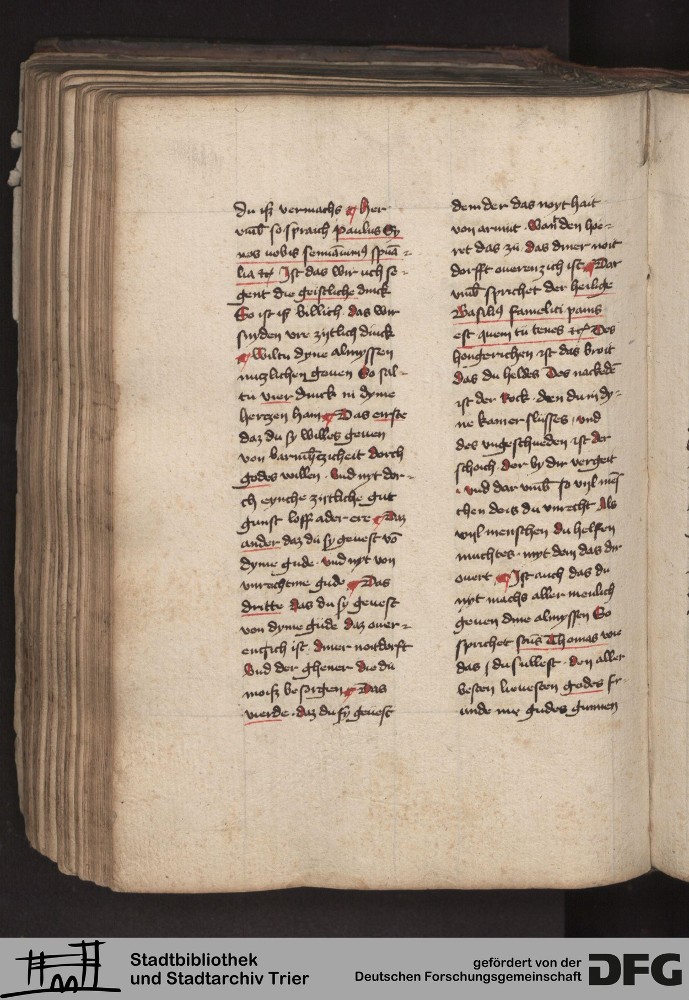 du iß vermachs ¶ Her
vmb so spraich paulus Sy
nos vobis seminauimus spūa⸗
lia ⁊cͣ Ist das wir uch se⸗
gent die geistliche dinck
So ist iß billich das wir
snyden vre zijtlich dinck
¶ Wiltu dyne almyssen
nutzlichen geuen So sal⸗
tu vier dinck in dyme
hertzen hain ¶ Das eirste
daz du sy willes geuen
von barmhertzicheit dorch
godes willen Vnd nyt dor⸗
ch eyniche zijtliche gut
gunst loff ader ere ¶ Daz
ander daz du sy geuest vō
dyme gude vnd nyt von
vnrechtme gude ¶ Das
dritte das du sy geuest
von dyme gude daz ouer⸗
entzich ist diner noitdorft
Vnd der ghener die du
moiß besorgen ¶ Das
vierde daz du sy geuest
dem der das noyt hait
von armut Wan den hoe⸗
ret das zu das diner noit
dorfft ouerenzich ist ¶ Dar
vmb sprichet der heilige
Basilius famelici panis
est quem tu tenes ⁊cͣ Des
hongerichen ist das broit
das du heldes Des nackedē
ist der Rock den du in dy⸗
ne kamer slusses vnd
des vngeschueden ist der
schoich der by dir vergeit
vnd dar vmb so vijl mē
schen deis du vnrecht Als
vijl menschen du helfen
muchtes myt dem das dir
ouert ¶ Ist auch das du
nyt machs aller menlich
geuen dine almyssen So
sprichet sctūs Thomas wie
das du sullest den aller
besten lieuesten godes fr
unde me gudes gunnen
Stadtbibliothek
und Stadtarchiv Trier
gefördert von der
Deutschen Forschungsgemeinschaft
DFG